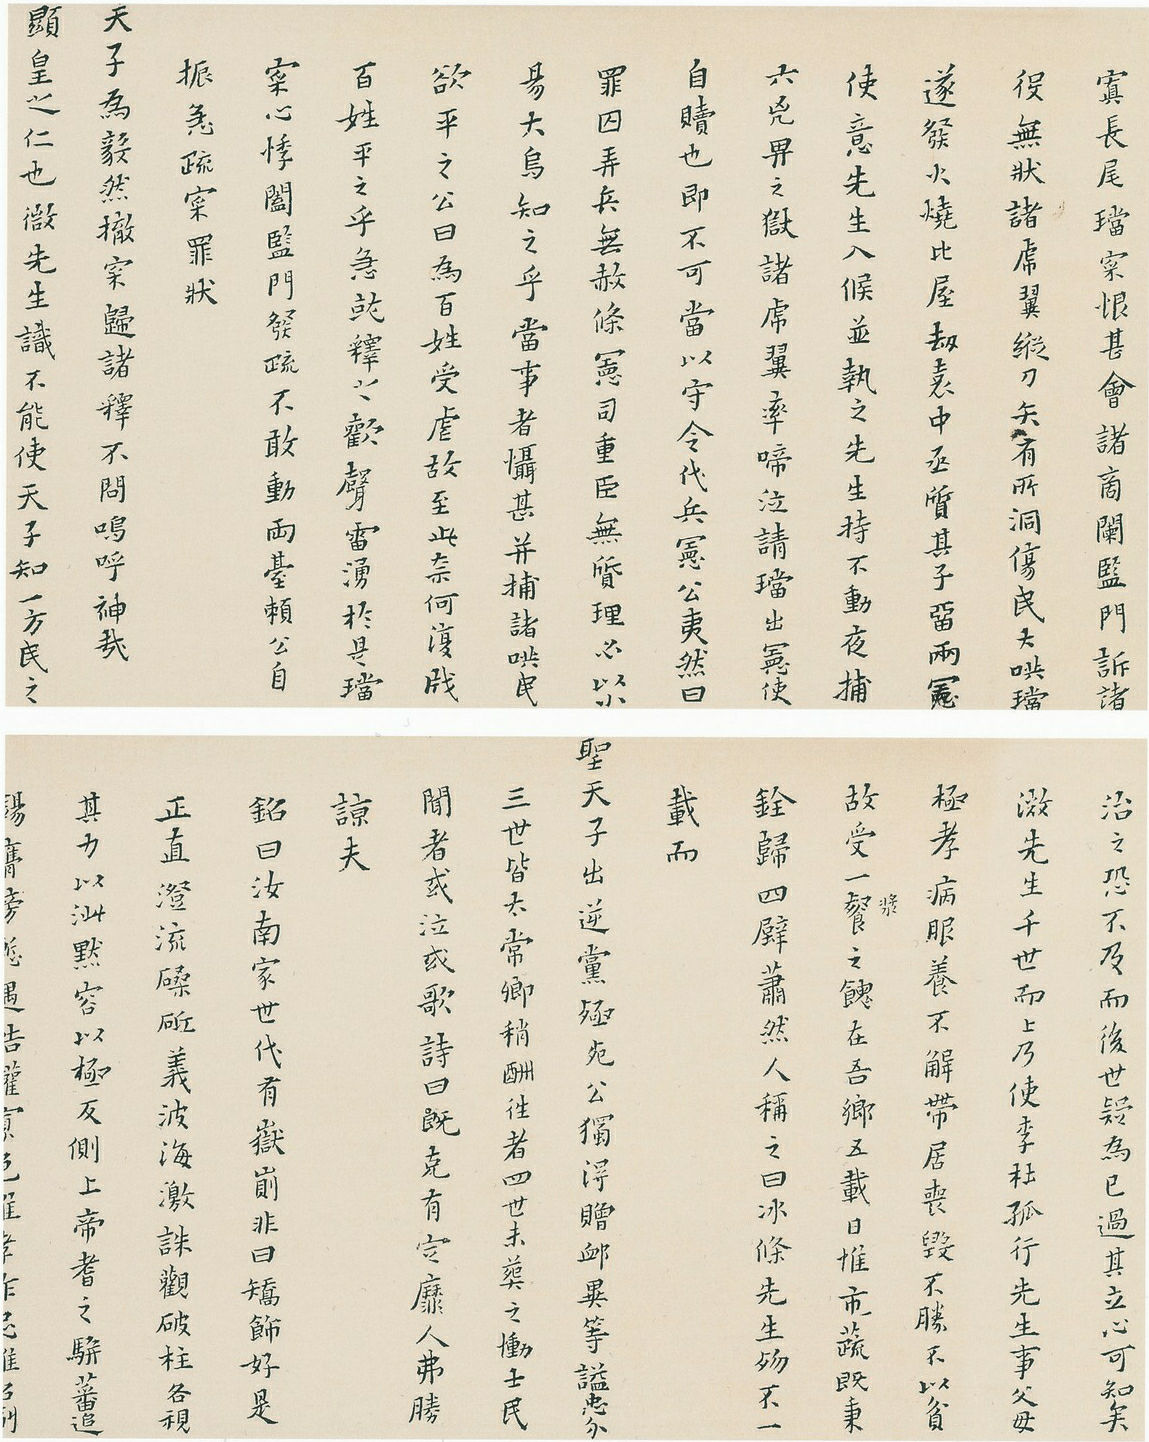 寘長尾璫寀恨甚會諸商闌監門訴諸
役無狀諸虎翼縱刀矢有所洞傷民大哄璫
遂發火燒比屋劫袁中丞質其子留兩憲
使意先生入候並執之先生持不動夜捕
六兇畀之獄諸虎翼率啼泣請璫出憲使
自贖也即不可當以守令代兵憲公夷然曰
罪囚弄兵無赦條憲司重臣無質理必以
易大烏知之乎當事者懾甚并捕諸哄民
欲平之公曰為百姓受虐故至此奈何復戕
百姓平之乎急訖釋之歡聲雷湧於是璫
寀心悸闔監門發疏不敢動兩臺賴公自
振急疏寀罪狀
天子為毅然撤寀歸諸釋不問嗚呼神哉
顯皇之仁也微先生識不能使天子知一方民之
治之恐不及而後世疑為已過其立心可知矣
微先生千世而上乃使李杜孤行先生事父母
極孝病眼養不解帶居喪毀不勝不以貧
故受一餐之餽在吾鄉五載日惟市蔬既秉
漿
銓歸四壁蕭然人稱之曰冰條先生歿不一
載而
聖天子出逆黨殛死公獨得贈卹異等謚忠介
三世皆太常卿稍酬往者四世未葬之慟士民
聞者或泣或歌詩曰既克有定靡人弗勝
諒夫
銘曰汝南家世代有嶽崱非曰矯飾好是
正直澄流磉砥義波海激誅觀破柱各視
其力以訕默容以極反側上帝耆之騈蕃追